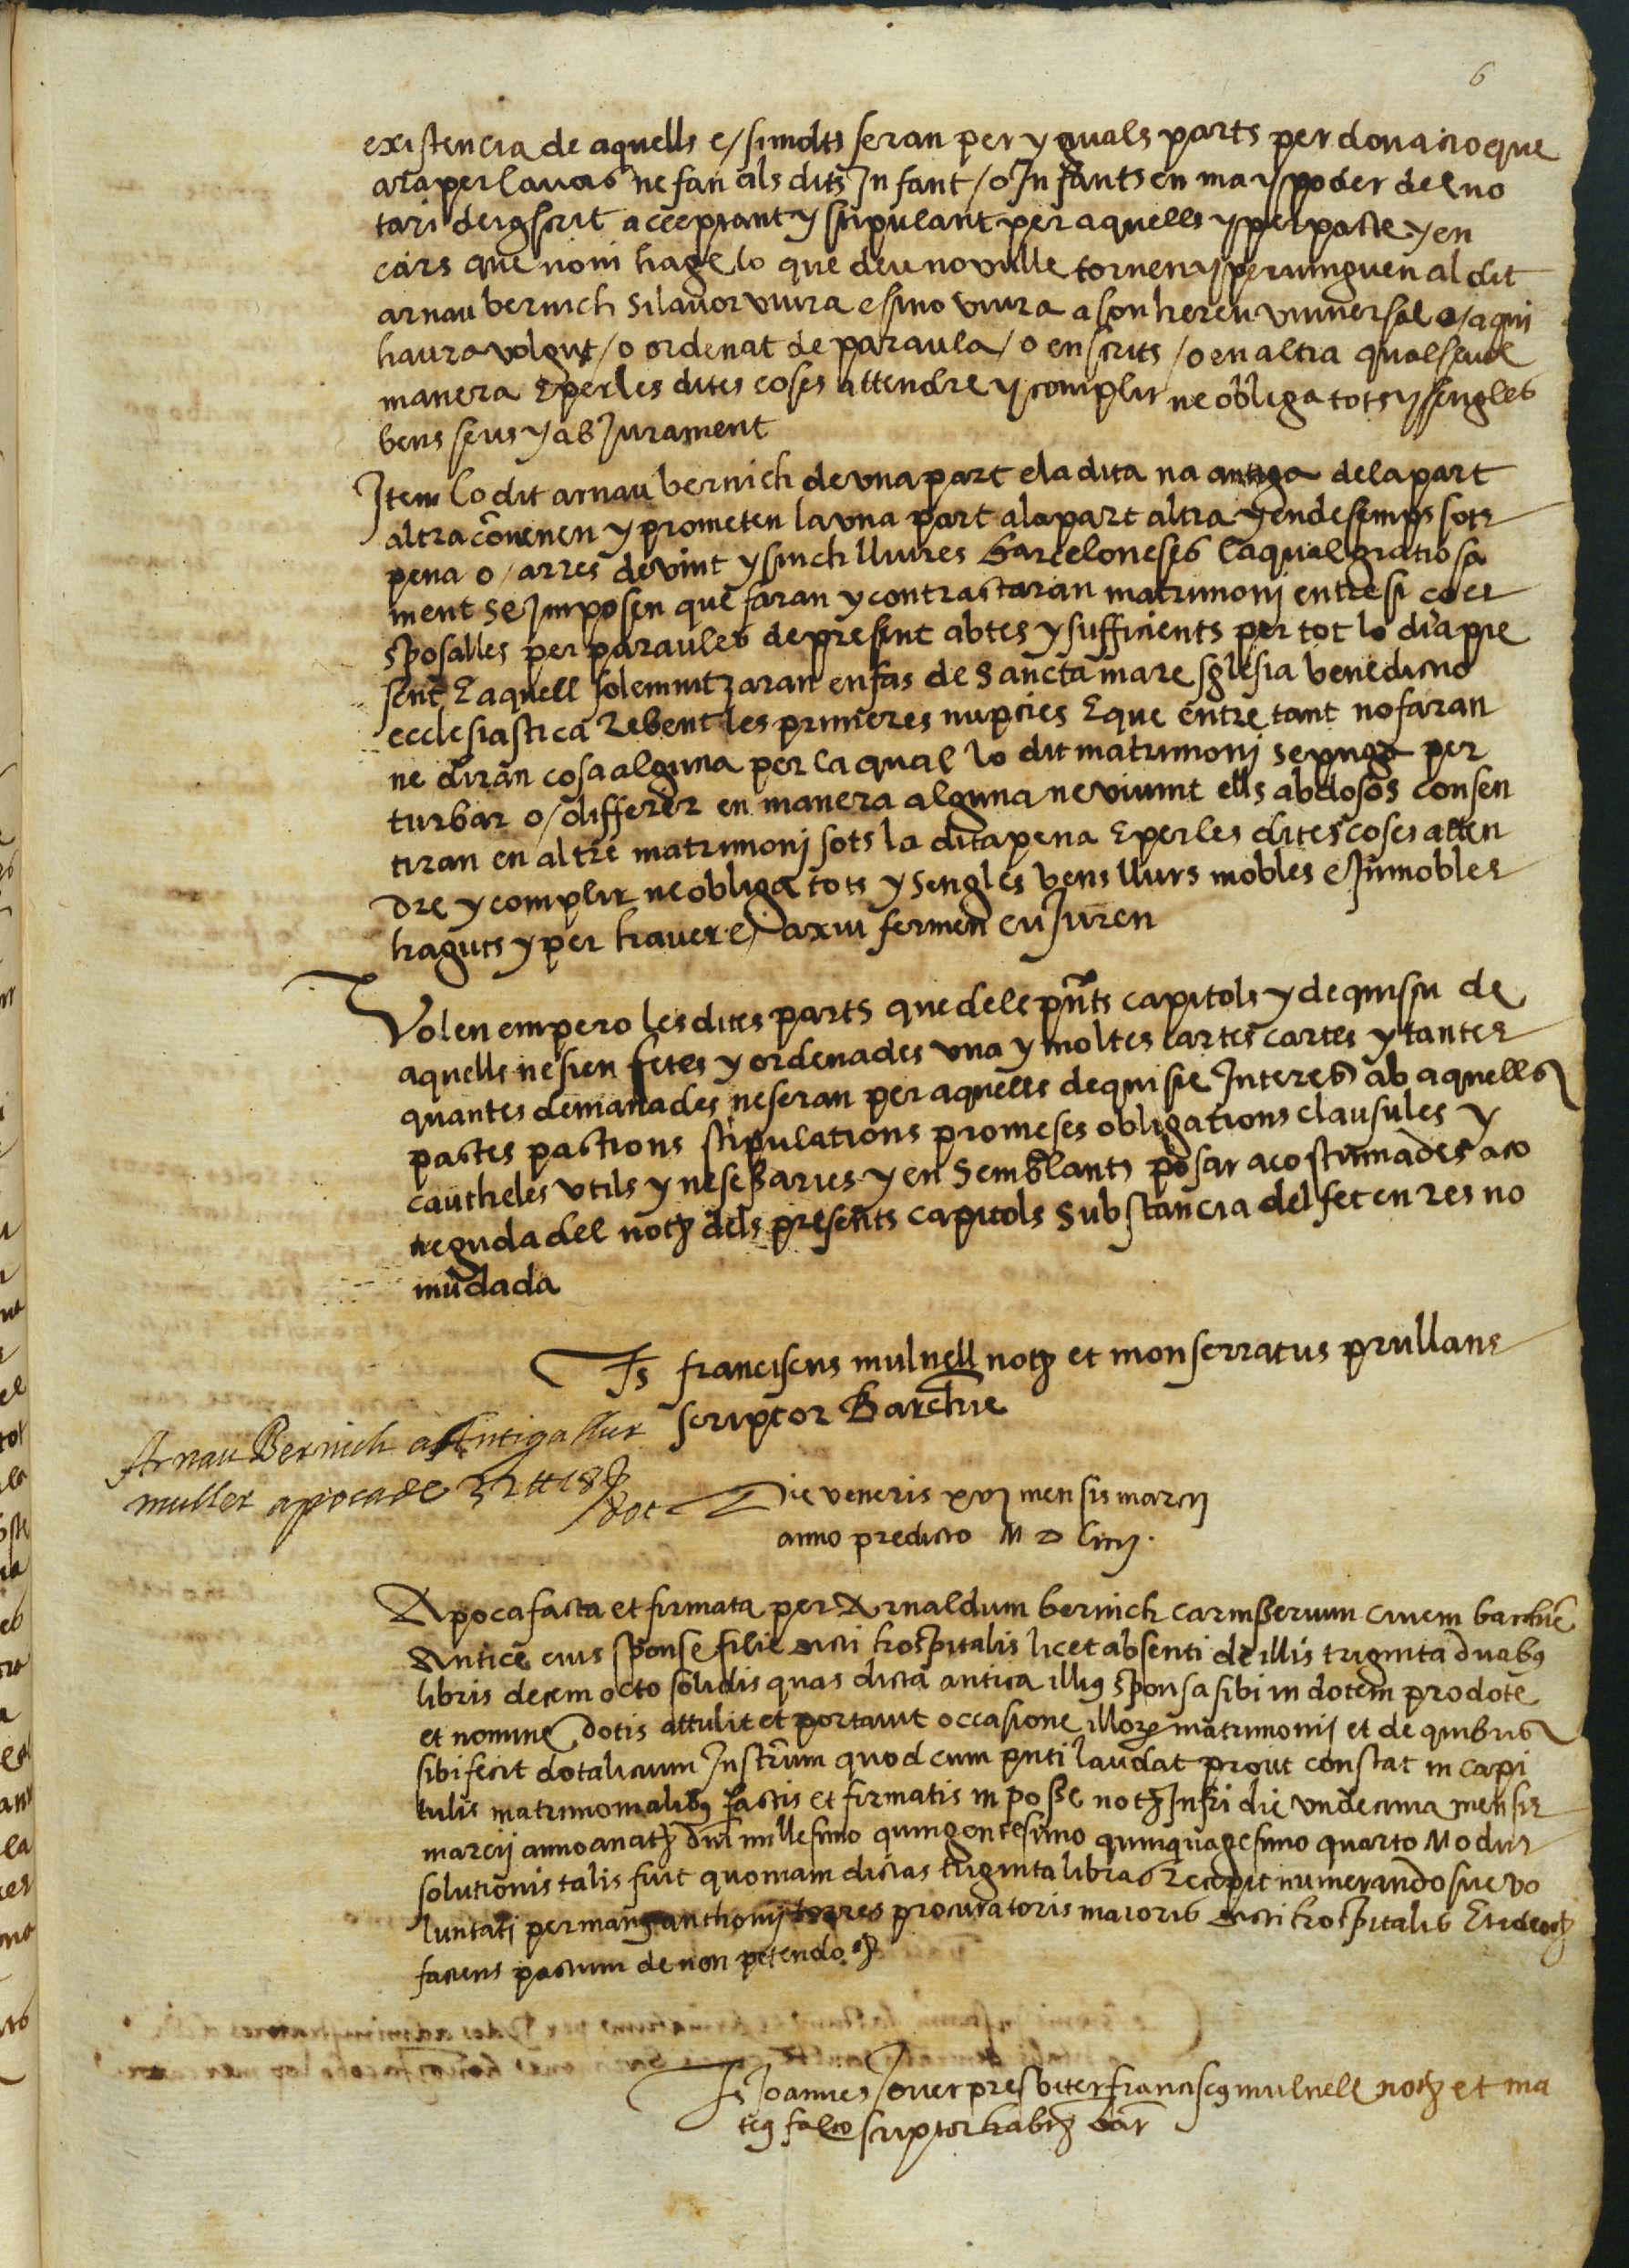 6
existencia de aquells e/ si molts seran per yguals parts per donacio que
ara per lavos ne fan als dits Infant/ o Infants en ma y poder del no
tari deigscrit acceptant y stipulant per aquells y per pacte y en
cars que noni hage lo que deu no vulle tornen y pervinguen al dit
arnau bernich si lavor viura e sino viura a son hereu universal o/ a qui
haura volgut/ o ordenat de paraula/ o en scrits/ o en altra qualsevol
manera E per les dites coses attendre y complir ne obliga tots y sengles
bens seus y ab Jurament
Item lo dit arnau bernich de una part e la dita na antiga de la part
altra cõvenen y prometen la una part a la part altra y endesemps sots
pena o/ arres de vint y sinch lliures barceloneses la qual gratiosa
ment se Imposen que faran y contractaran matrimoni entre si co es
sposalles per paraules de present abtes y sufficients per tot lo dia pre
sent E aquell solemnitzaran en fas de sancta mare sglesia benedictio
ecclesiastica rebent les primeres nupcies E que entretant no faran
ne diran cosa alguna per la qual lo dit matrimoni se puga per
turbar o/ differer en manera alguna ne vivint ells abdosos consen
tiran en altre matrimonj sots la dita pena E per les dites coses atten
dre y complir ne obliga tots y sengles bens llurs mobles e Inmobles
haguts y per haver e/ axiu fermen eu Juren
Volen empero les dites parts que dels pñts capitols y de quiscu de
aquells ne sien fetes y ordenades una y moltes cartes cartes y tantes
quantes demanades ne seran per aquells de qui sie Interes ab aquells
pactes pactions stipulations promeses obligations clausules y
cautheles utils y nesessaries y en semblants posar acostumades aco
neguda del notȝ dels presents capitols substancia del fet en res no
mudada
Ts franciscus mulnell notȝ et monserratus prullans
scriptor Barchne
Arnau Bernich a Antiga llur
muller apoca de 32 ℔ 18 ß
dot
Die veneris xvj mensis marcij
anno predicto M D Liiij.
Apoca facta et firmata per Arnaldum bernich carnisserium civem barchnẽ
Antice eius sponse filie dicti hospitalis licet absenti de illis triginta duabꝰ
libris decem octo solidis quas dicta antica illiꝰ sponsa sibi in dotem pro dote
et nomine dotis attulit et portavit occasione illorꝝ matrimonij et de quibus
sibi fecit dotalicium Instrũm quod cum pñti laudat prout constat in capi
tulis matrimonialibꝰ factis et firmatis in posse notȝ Infri die undecima mensis
marcij anno a natȝ dñi millesimo quingentesimo quinquagesimo quarto Modus
solutionis talis fuit quoniam dictas triginta libras recepit numerando sue vo
luntati per manꝰ anthonij torres procuratoris maioris dicti hospitalis Et ideo ȝ
faciens pactum de non petendo ȝ
Ts Joannes Jover presbiter franciscꝰ mulnell notȝ et ma
teꝰ falco scriptor habitȝ bar